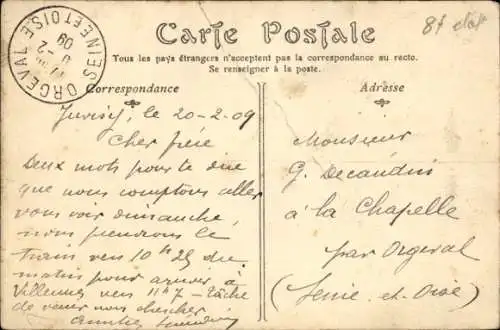 Carte Postale
Tous les pays étrangers n'acceptent pas la correspondance au recto.
Se renseigner à la poste.
Correspondance
Adresse
ORGEVAL SEINE ET OISE
09
Juvisy, le 20-2-09
Cher frère
Deux mots pour te dire
que nous comptons aller
vous voir dimanche,
nous prendrons le
train vers 10h 25 du
matin pour arriver à
Villennes vers 11h7 - Tâche
de venir nous chercher
Monsieur
G. Decaudin
à la Chapelle
par Orgeval
(Seine-et-Oise)